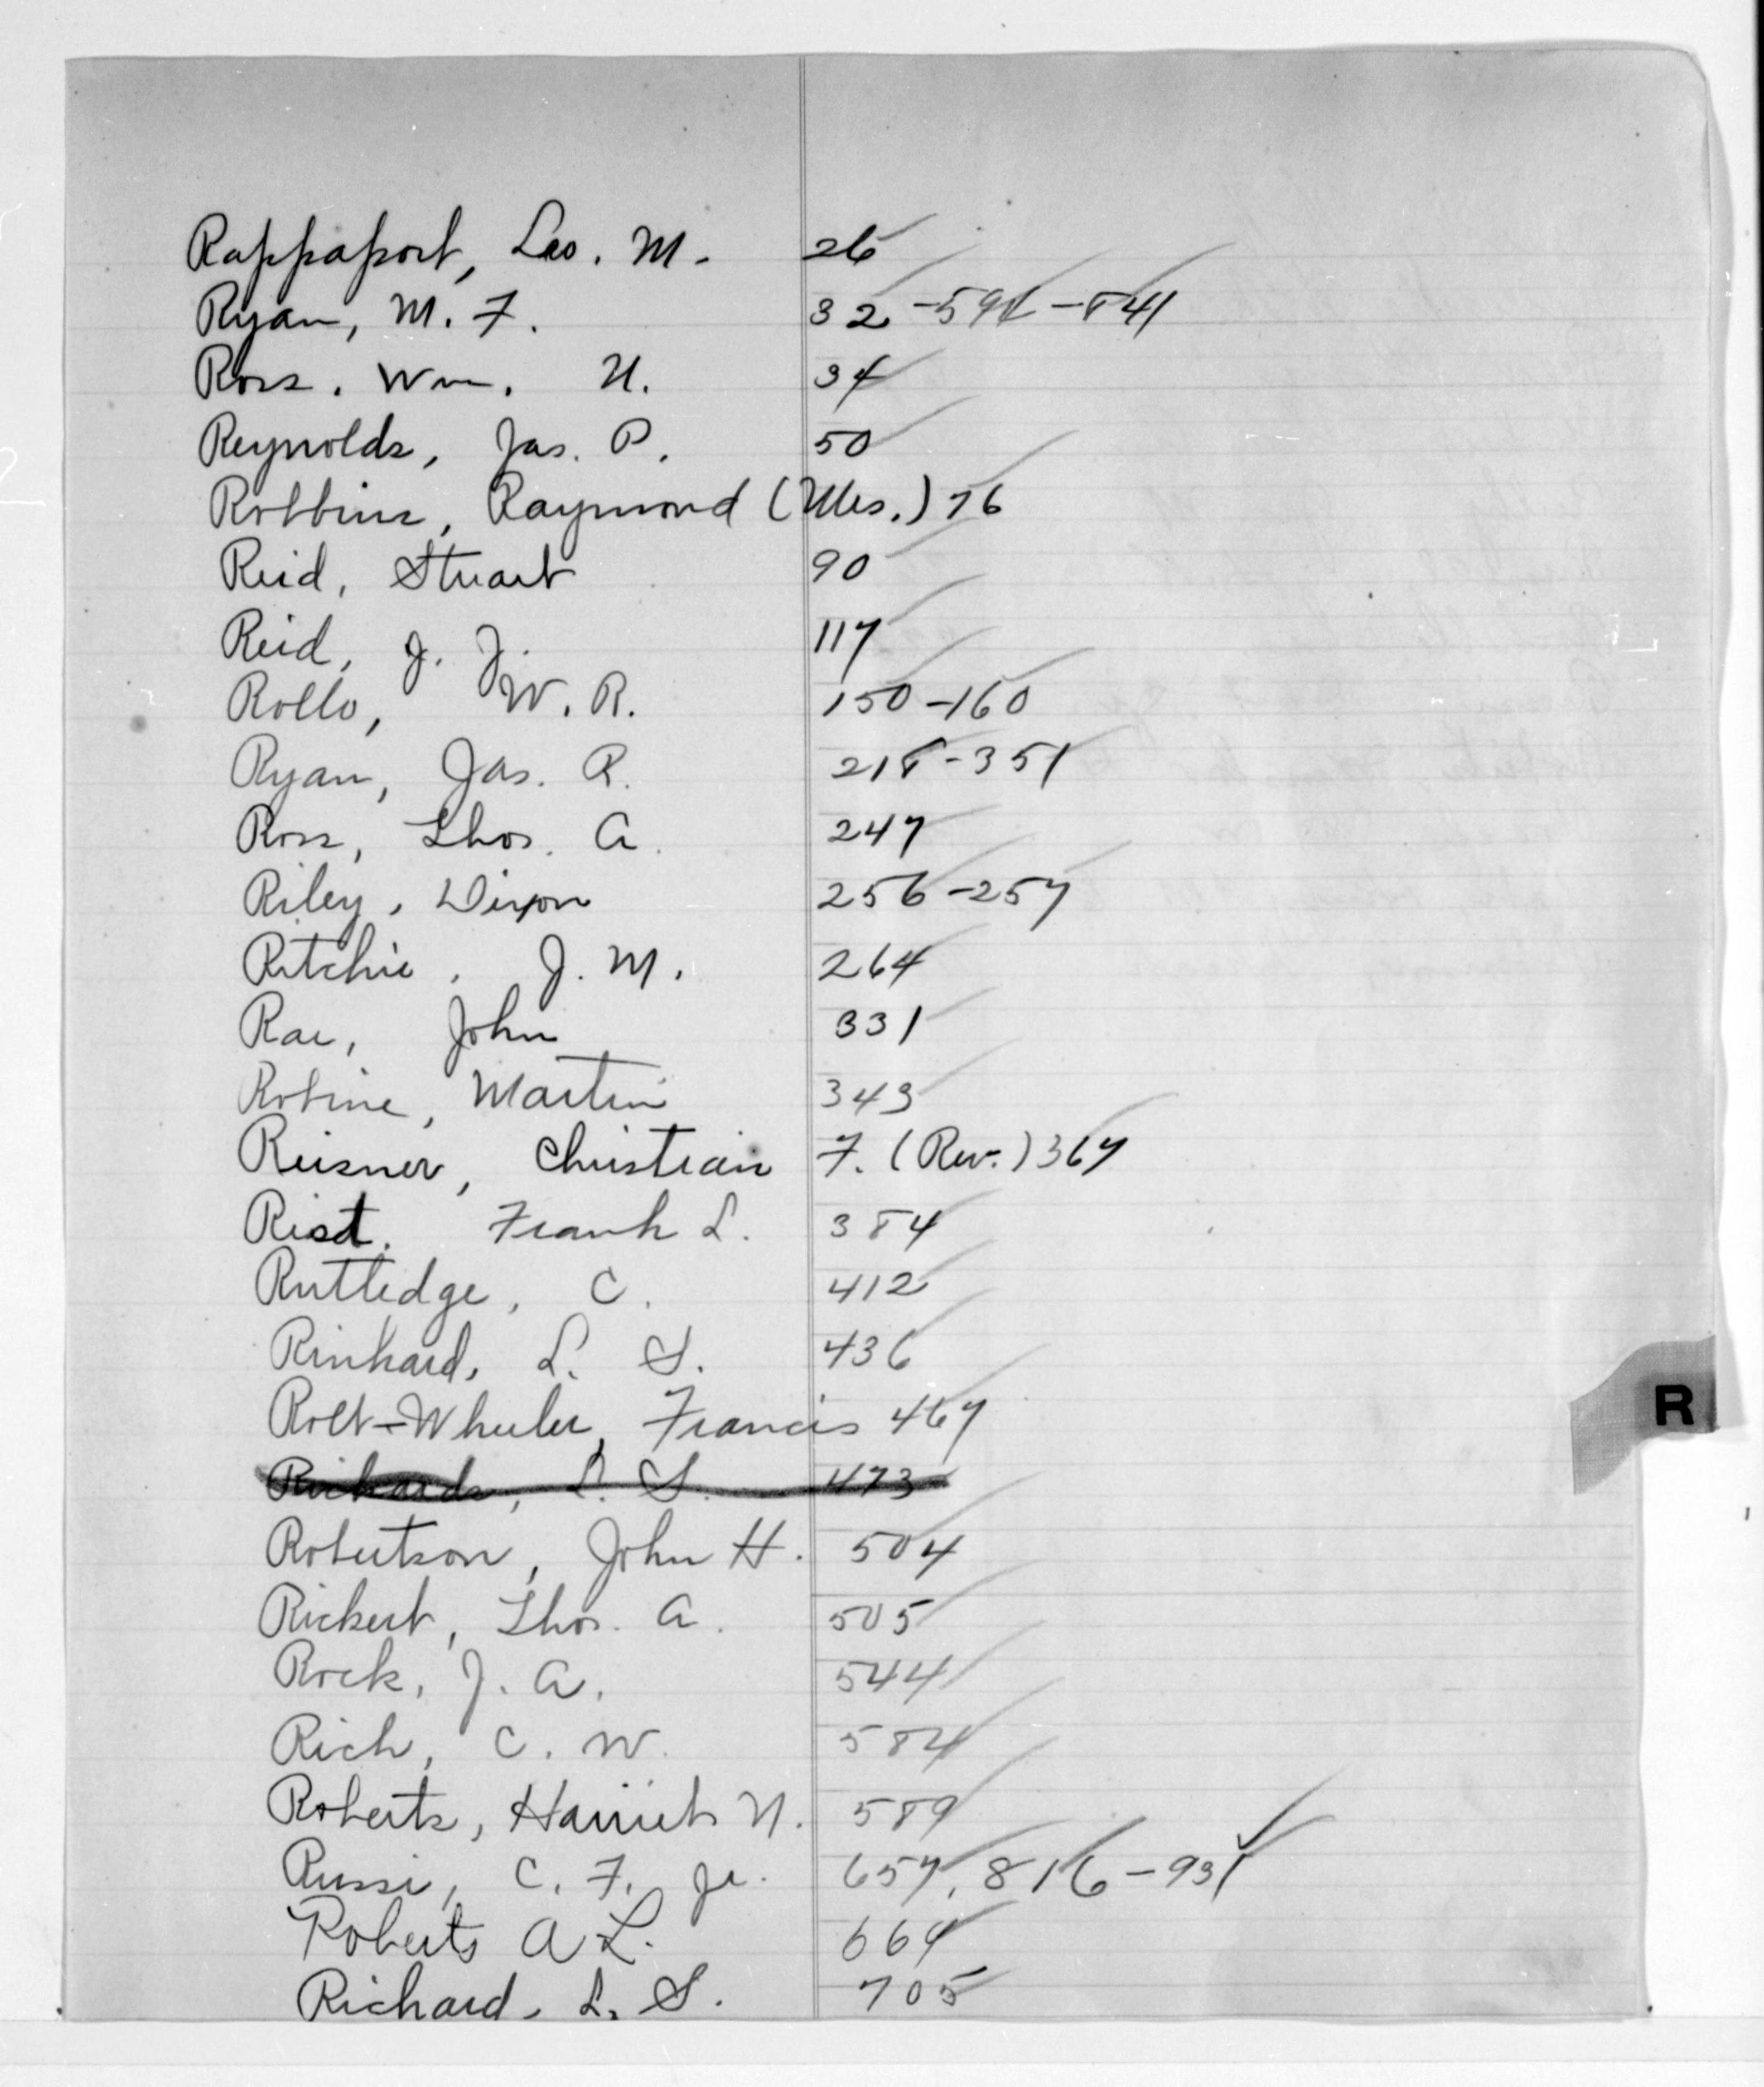 Rappaport, Leo. M. 26
Ryan, M. F. 32-591-841
Ross. Wm. N. 34
Reynolds, Jas. P. 50
Robbins, Raymond (Mrs.) 76
Reid, Stuart 90
Reid, J. J. 117
Rollo, W. R. 150-160
Ryan, Jas. R. 218-351
Ross, Thos. A. 247
Riley, Dixon 256-257
Ritchie. J. M. 264
Rae, John 331
Robine, Martin 343
Reisner, Christian F. (Rev.) 367
Rist. Frank L. 384
Rutledge, C. 412
Rinhard, L. S. 436
Rolt-Wheeler, Francis 467
Richards, L. S. 473
Robertson, John H. 504
Rickert, Thos. A. 505
Rock, J. A. 544
Rich, C. W. 584
Roberts, Harriet N. 589
Russi, C. F. Jr. 657, 816-931
Roberts A L. 664
Richard, L. S. 705
R